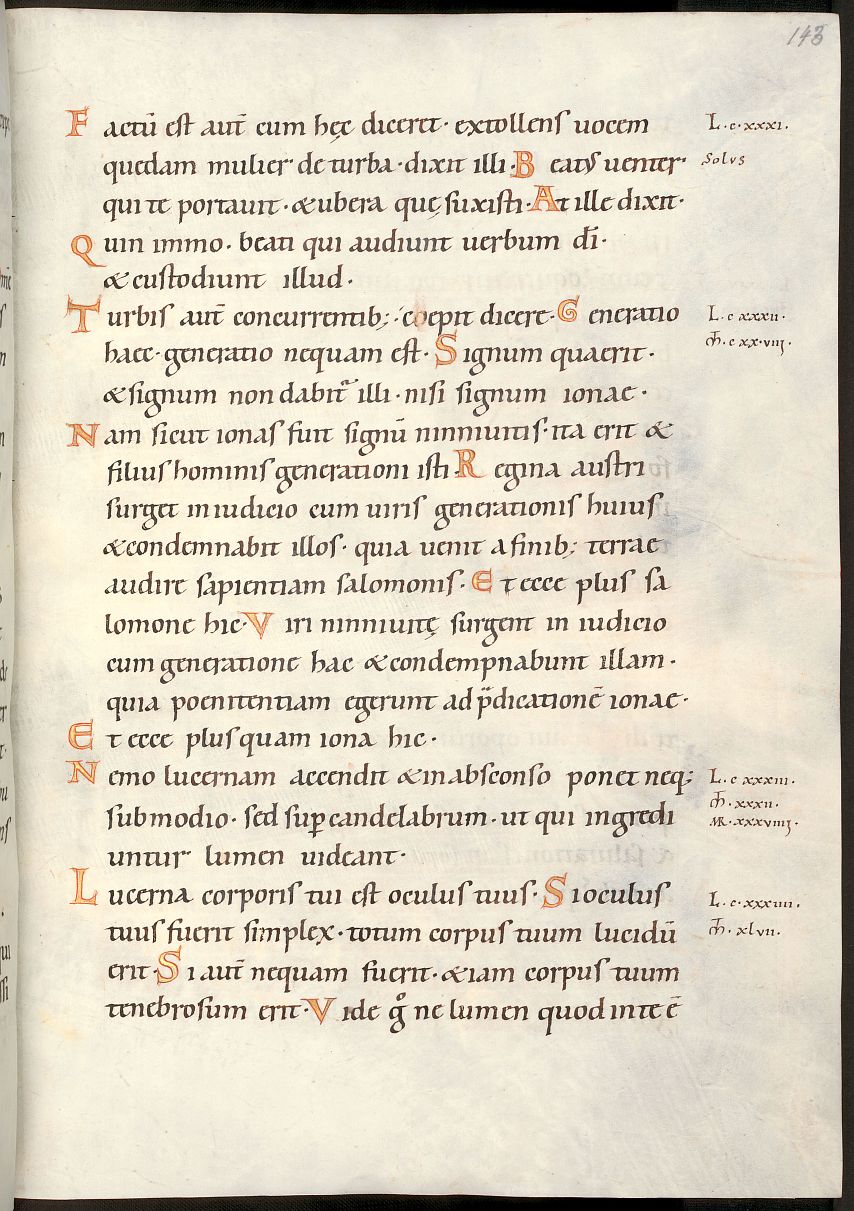 143
Factū est aut̄ cum hęc diceret · extollens uocem L · c · xxxi ·
quedam mulier de turba · dixit illi · Beatus uenter · Solus
qui te portauit · & ubera quę suxisti · At ille dixit ·
Quin immo · beati qui audiunt uerbum dī ·
& custodiunt illud ·
Turbis aut̄ concurrentib; · coepit dicere · Generatio L · c xxxii ·
haec · generatio nequam est · Signum quaerit · m̄ · c xx · viiij ·
& signum non dabit᷑ illi · nisi signum ionae ·
Nam sicut ionas fuit signū niniuitis · ita erit &
filius hominis generationi isti · Regina austri
surget in iudicio cum uiris generationis huius
& condemnabit illos · quia uenit a finib; terrae
audire sapientiam salomonis · Et ecce plus sa
lomone hic · Viri niniuitę surgent in iudicio
cum generatione hac & condempnabunt illam ·
quia poenitentiam egerunt ad p̄dicationē ionae ·
Et ecce plus quam iona hic ·
Nemo lucernam accendit & in absconso ponet neq; L · c xxxiii ·
sub modio · sed suꝑ candelabrum · ut qui ingredi m̄ · xxxii ·
MR · xxxviiij ·
untur lumen uideant ·
Lucerna corporis tui est oculus tuus · Si oculus L · c · xxxiiii ·
tuus fuerit simplex · totum corpus tuum lucidū m̄ · xlvii ·
erit · Si aut̄ nequam fuerit · &iam corpus tuum
tenebrosum erit · Vide gͦ ne lumen quod in te ē